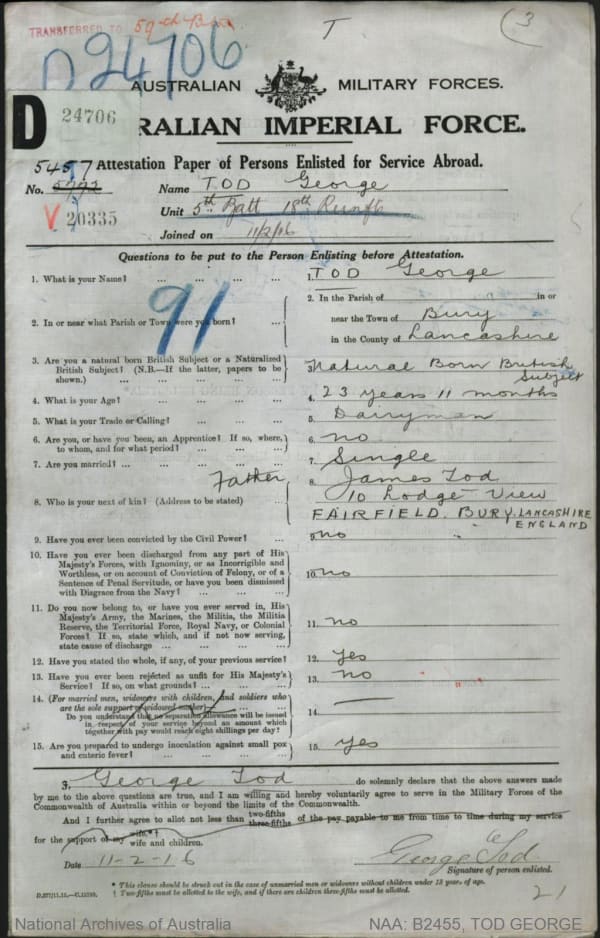 TRANSFERRED TO 59th Bn
T
3
D24706
AUSTRALIAN MILITARY FORCES.
D 24706
RALIAN IMPERIAL FORCE.
5457 Attestation Paper of Persons Enlisted for Service Abroad.
No. 5772 Name TOD George
V 20335 Unit 5th Batt 18th Reinfts
Joined on 11/2/16
Questions to be put to the Person Enlisting before Attestation.
1. What is your Name? ... 1. TOD George
91
2. In or near what Parish or Town were you born? ... 2. In the Parish of in or
near the Town of Bury
in the County of Lancashire
3. Are you a natural born British Subject or a Naturalized British Subject? (N.B.—If the latter, papers to be shown.) ... 3. Natural Born British Subject
4. What is your Age? ... 4. 23 years 11 months
5. What is your Trade or Calling? ... 5. Dairyman
6. Are you, or have you been, an Apprentice? If so, where, to whom, and for what period? ... 6. no
7. Are you married? ... 7. Single
8. Who is your next of kin? (Address to be stated) ... Father 8. James Tod
10 Lodge View
FAIRFIELD. BURY, LANCASHIRE
ENGLAND
9. Have you ever been convicted by the Civil Power? ... 9. no
10. Have you ever been discharged from any part of His Majesty's Forces, with Ignominy, or as Incorrigible and Worthless, or on account of Conviction of Felony, or of a Sentence of Penal Servitude, or have you been dismissed with Disgrace from the Navy? ... 10. no
11. Do you now belong to, or have you ever served in, His Majesty's Army, the Marines, the Militia, the Militia Reserve, the Territorial Force, Royal Navy, or Colonial Forces? If so, state which, and if not now serving, state cause of discharge ... 11. no
12. Have you stated the whole, if any, of your previous service? 12. yes
13. Have you ever been rejected as unfit for His Majesty's Service? If so, on what grounds? ... 13. no
14. (For married men, widowers with children, and soldiers who are the sole support of widowed mother)—
Do you understand that no separation allowance will be issued in respect of your service beyond an amount which together with pay would reach eight shillings per day? ... 14. —
15. Are you prepared to undergo inoculation against small pox and enteric fever? ... 15. yes
I, George Tod do solemnly declare that the above answers made
by me to the above questions are true, and I am willing and hereby voluntarily agree to serve in the Military Forces of the
Commonwealth of Australia within or beyond the limits of the Commonwealth.
And I further agree to allot not less than two-fifths three-fifths of the pay payable to me from time to time during my service
for the support of my wife.*† wife and children.
Date 11-2-16
George Tod
Signature of person enlisted.
* This clause should be struck out in the case of unmarried men or widowers without children under 18 years of age.
† Two-fifths must be allotted to the wife, and if there are children three-fifths must be allotted.
21
National Archives of Australia
NAA: B2455, TOD GEORGE